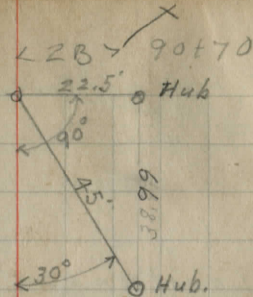 <ZB> 90+70
22.5' Hub
90°
45'
30° Hub.